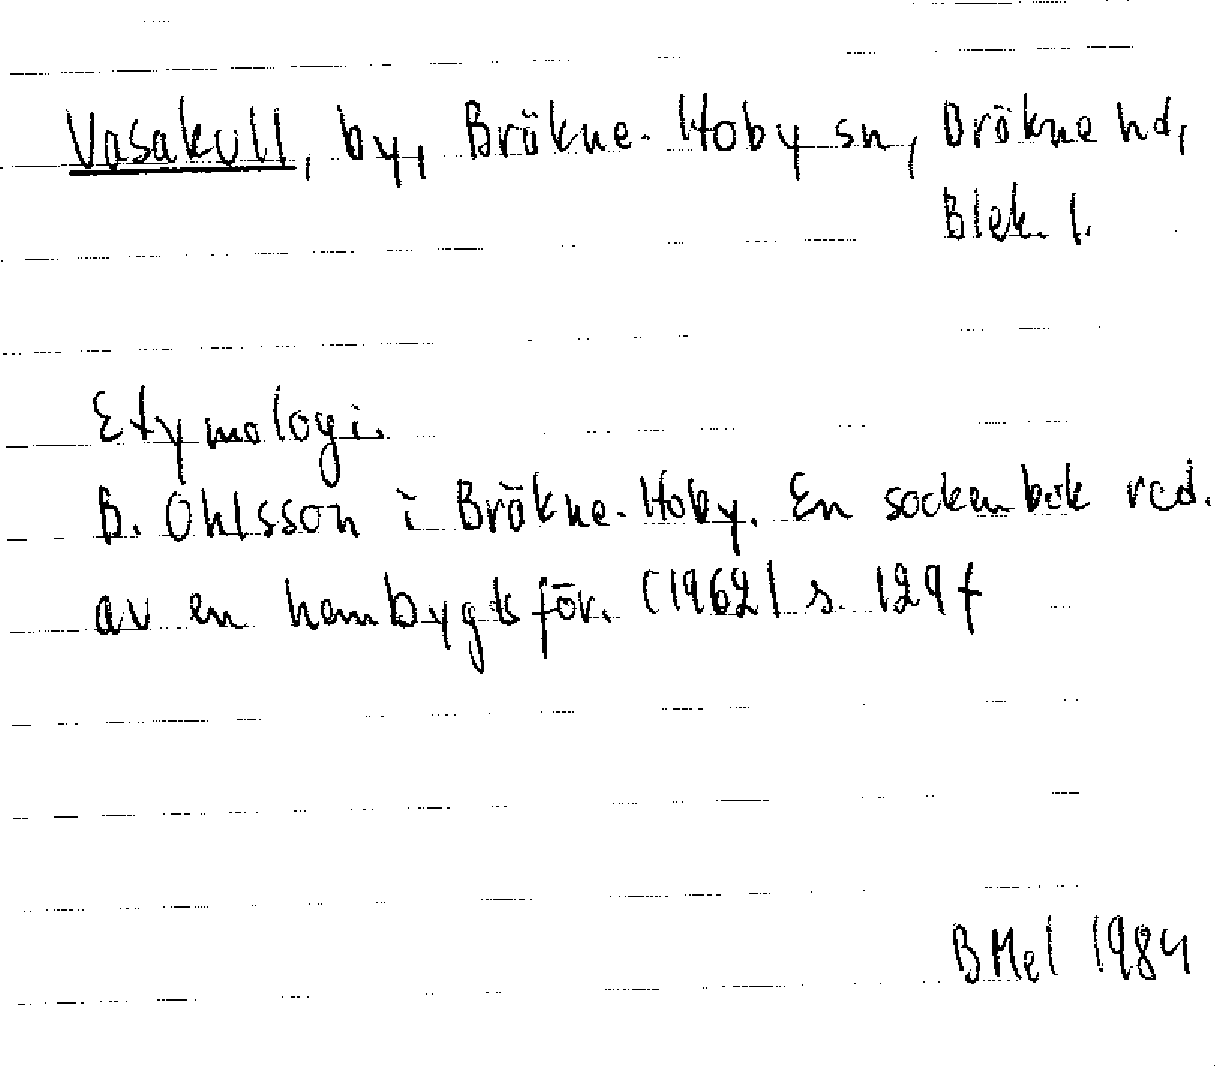 Vasakull, by, Bräkne-Hoby sn, Bräkne hd,
Blek. l.
Etymologi.
B. Ohlsson i Bräkne-Hoby. En sockenbok red.
av en hembygdsför. (1962) s. 129 f
BMel 1984